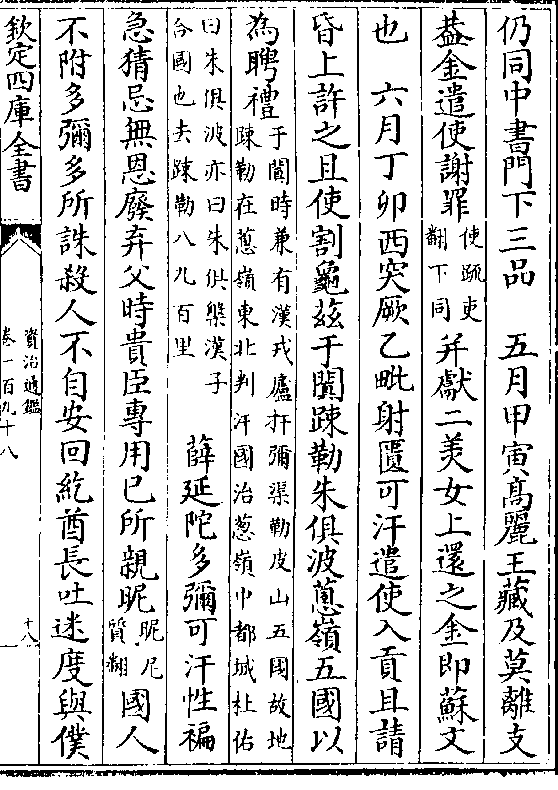 仍同中書門下三品　五月甲寅髙麗王藏及莫離支
葢金遣使謝罪使疏吏翻下同幷獻二美女上還之金即蘇文
也　六月丁卯西突厥乙毗射匱可汗遣使入貢且請
昏上許之且使割龜兹于闐踈勒朱俱波蔥嶺五國以
為聘禮于闐時兼有漢戎盧扞彌渠勒皮山五國故地踈勒在蔥嶺東北判汗國治蔥嶺中都城杜佑
曰朱俱波亦曰朱俱槃漢子合國也去踈勒八九百里　薛延陀多彌可汗性褊
急猜忌無恩廢弃父時貴臣專用已所親昵昵尼質翻國人
不附多彌多所誅殺人不自安回紇酋長吐迷度與僕
欽定四庫全書
資治通鑑
卷一百九十八
十八